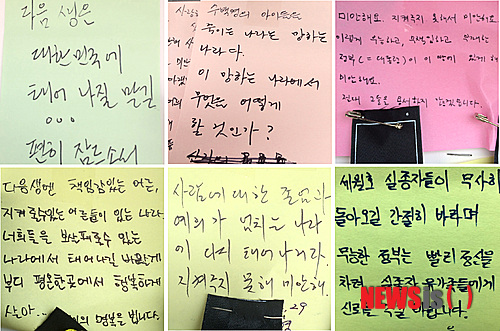 다음 생은
대한민국에
태어 나질 말길
편히 잠드소서
수백명의 아이들을
죽이는 나라는 망하는
나라다.
이 망하는 나라에서
무엇을 어떻게
할 것인가?
미안해요. 지켜주지 못해서 미안해요
이렇게 무능하고, 무책임하고
정부 (= 대통령)이 이 땅에 있게 해
미안해요.
절대 그들을 용서하지 않겠습니다.
다음생엔 책임감있는 어른,
지켜줄수있는 어른들이 있는 나라.
너희들을 보살펴줄수 있는
나라에서 태어나길 바랄게
부디 평온한곳에서 행복하게
살아...
명복을 빕니다.
사람에 대한 존엄과
예의가 넘치는 나라
이 다시 태어나거라.
지켜주지 못해 미안해.
29
세월호 실종자들이 무사히
돌아오길 간절히 바라며
무능한 정부는 빨리 정신을
차려 실종자 유가족들에게
신뢰를
NEWSIS